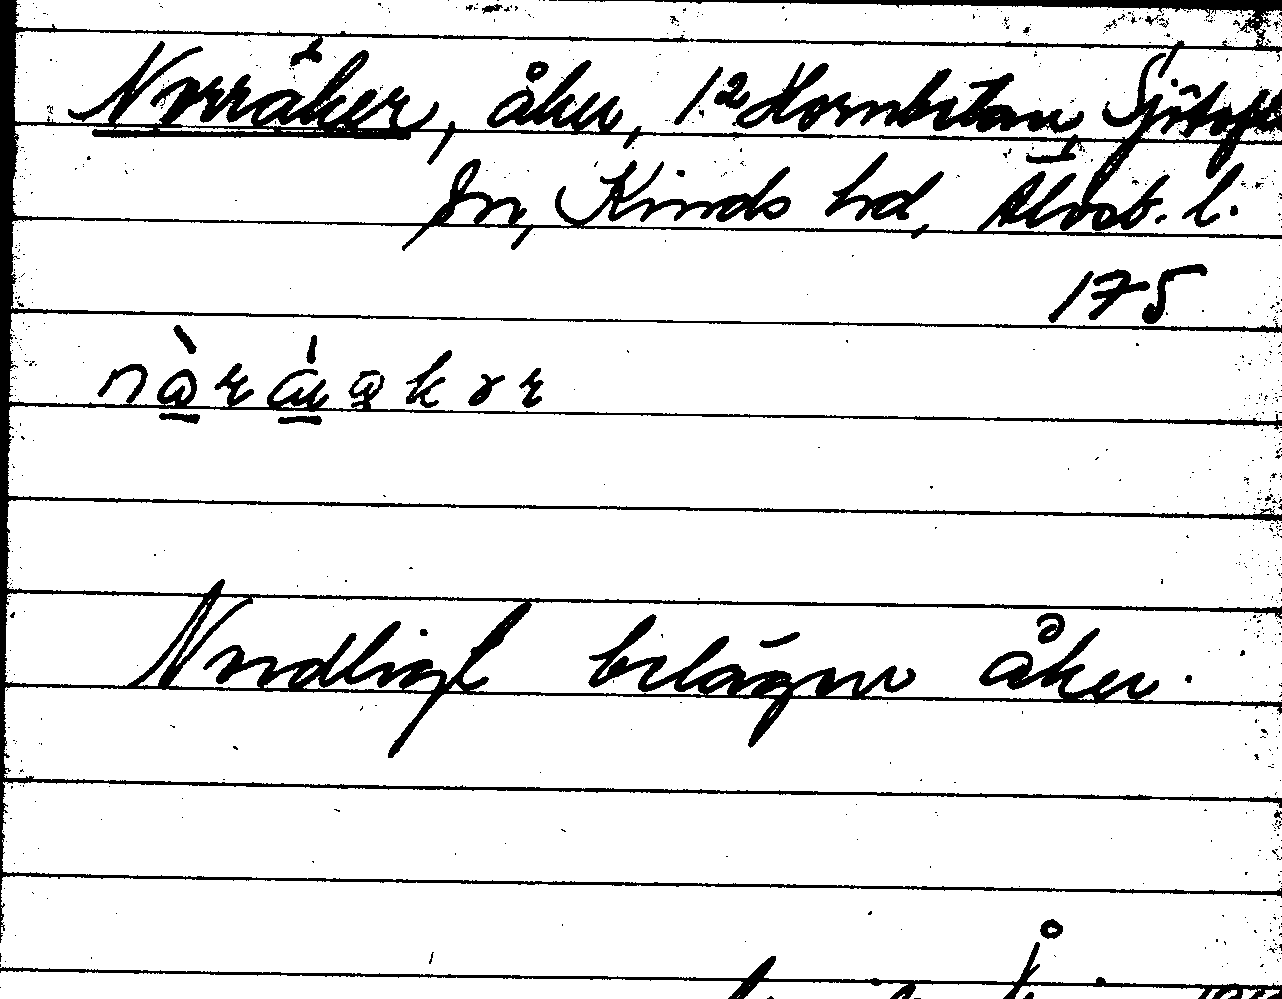 Norråker, åker, 1² Hornbetan, Sjötofta
sn, Kinds hd, Älvsb. l.
175
Nordligt belägen åker.